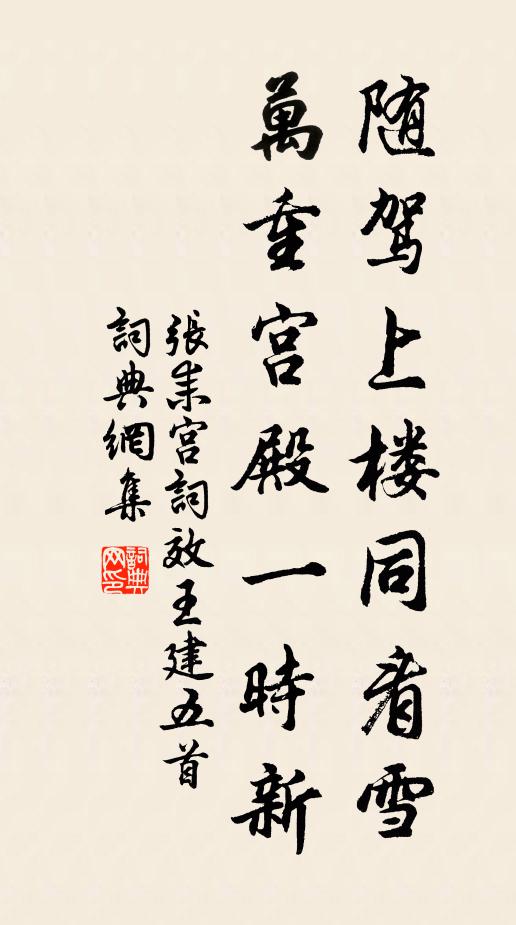 随驾上楼同看雪
萬重宫殿一時新
張耒宫詞效王建五首
詞典網集
詞典网印